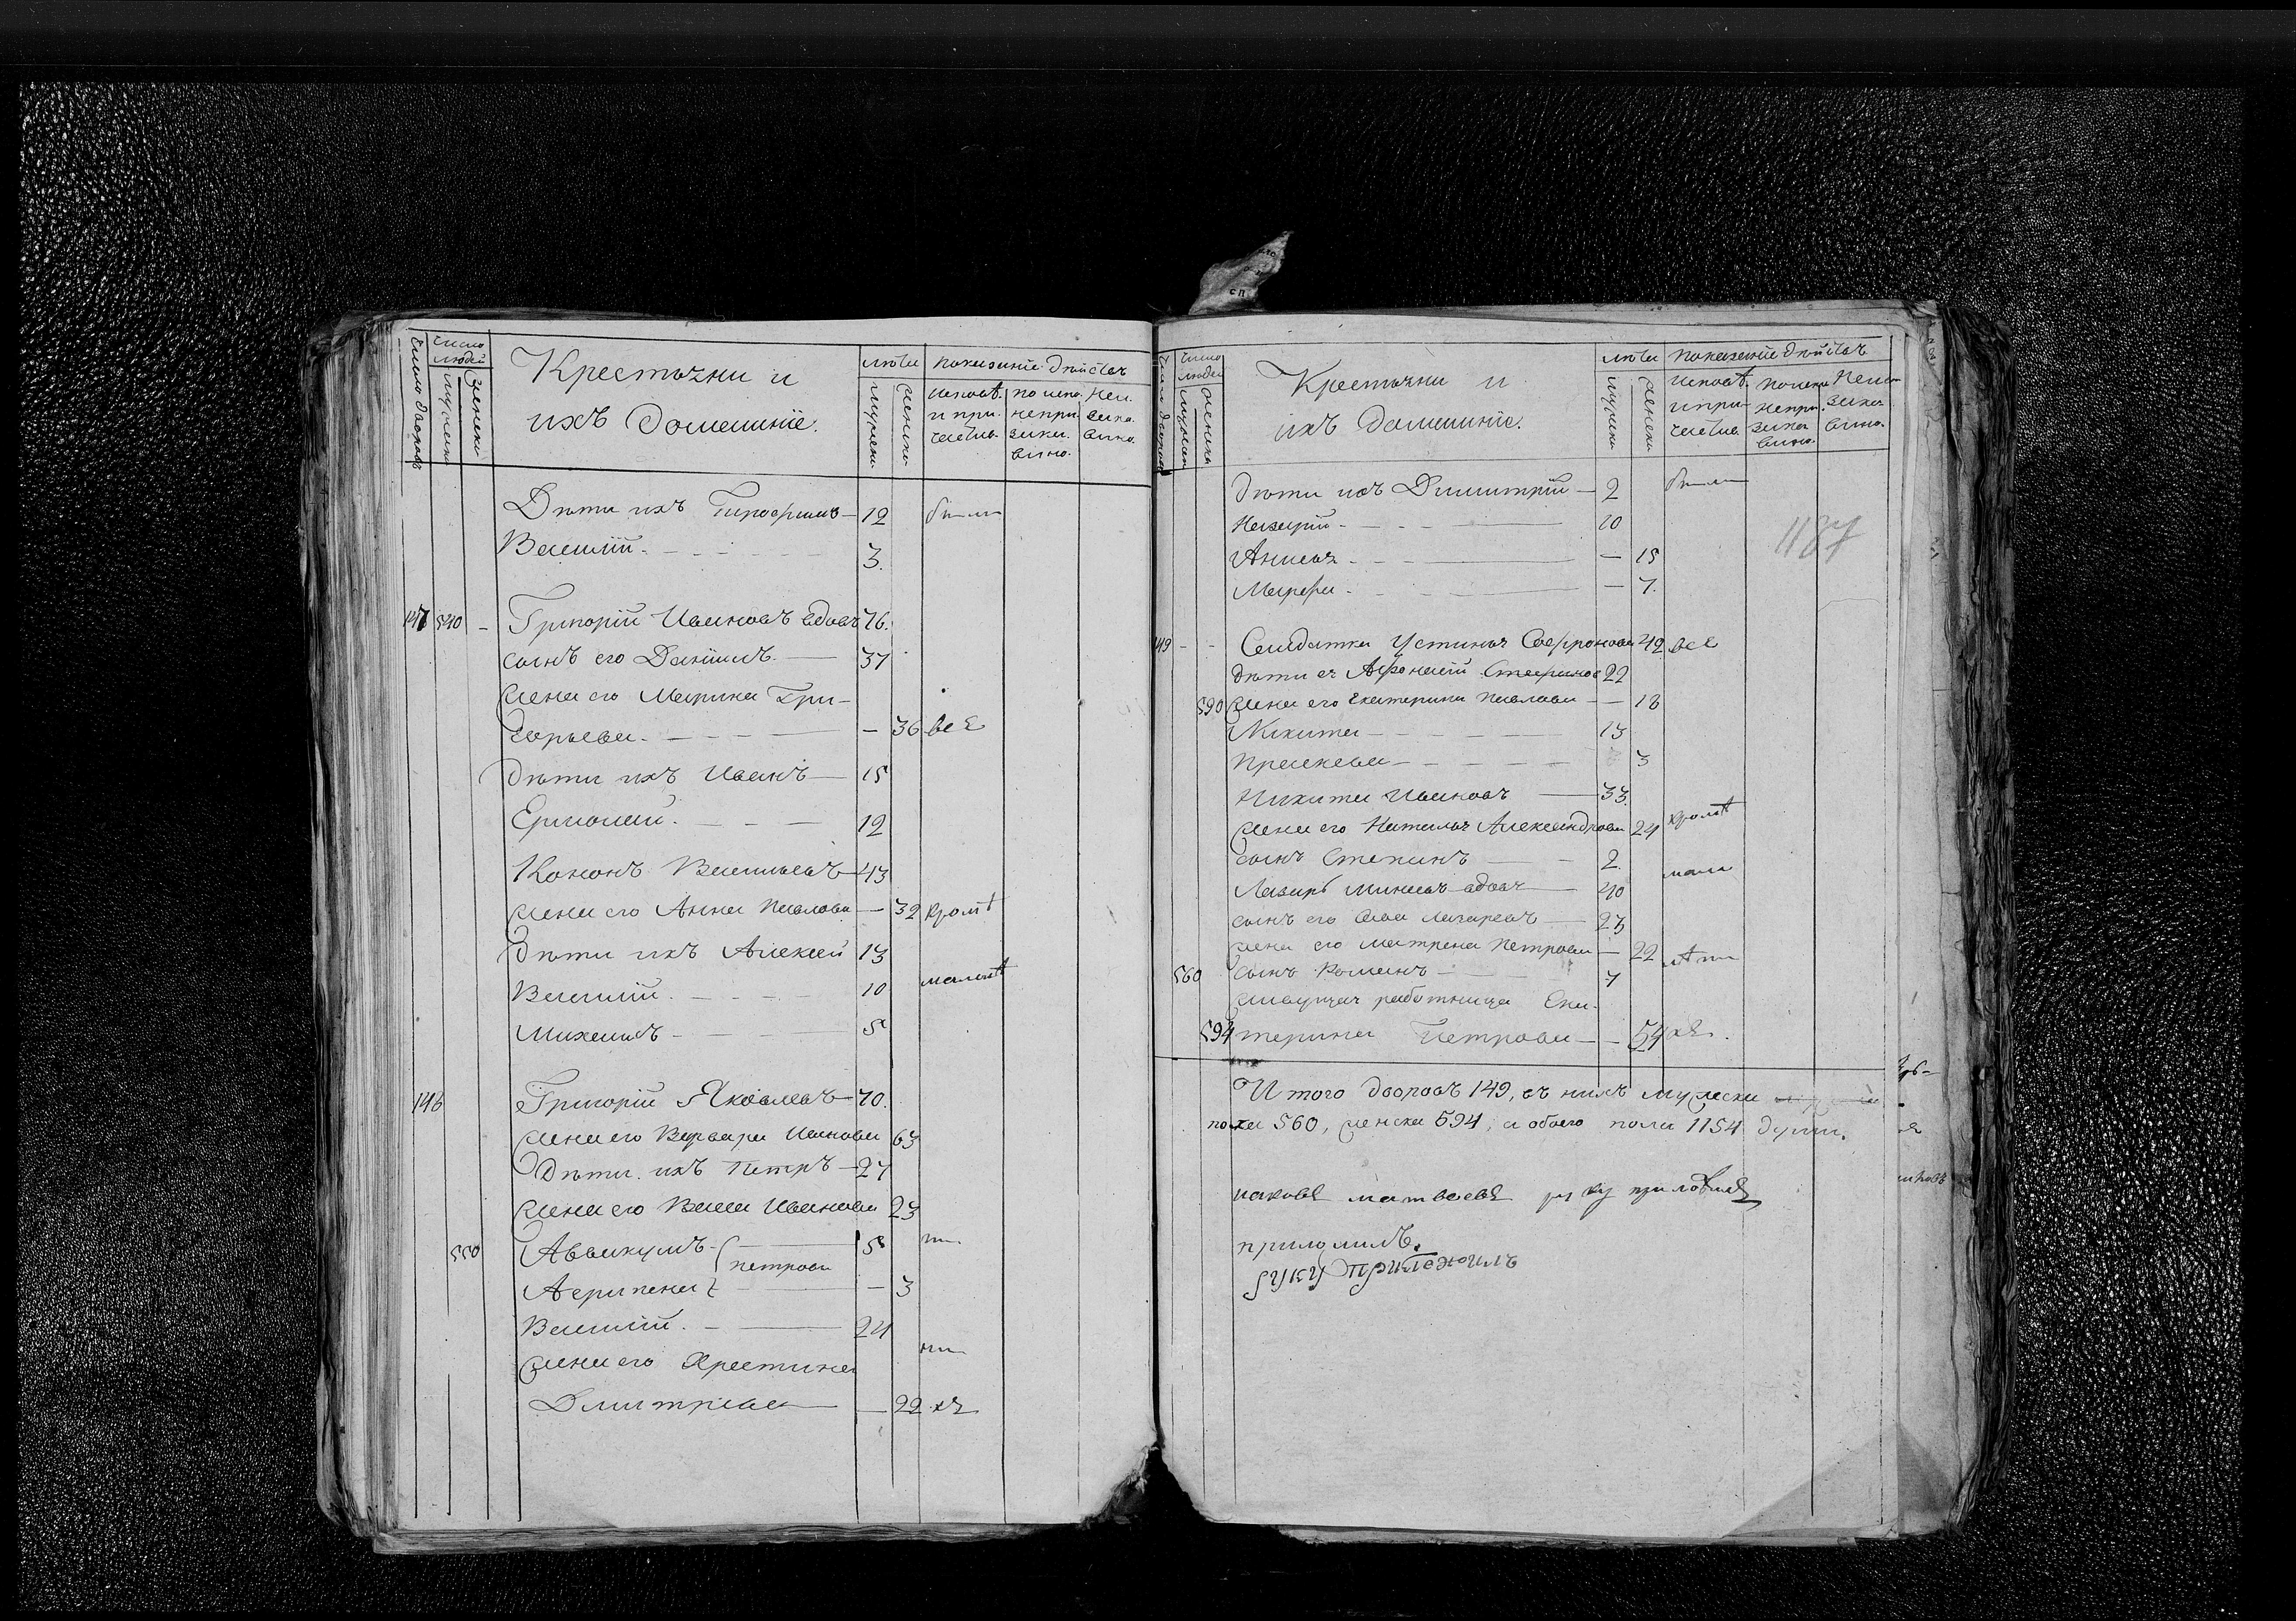 Число дворовъ
Число людей
мужеска
женска
Крестьяне и
ихъ домашніе.
лѣта
мужеска
женска
показаніе дѣйства
исповѣ. и при. частив.
по испо. непри.
Дѣти ихъ Тимофей 12 были
Василій 3.
147 540 Григорій Ивановъ вдовъ 76.
сынъ его Даніилъ 37
жена его Марина Гри-
горьева 36 всѣ
дѣти ихъ Иванъ 15
Ермолай 12
Кононъ Васильевъ 43
жена его Анна Павлова 32 кромѣ
дѣти ихъ Алексей 13
Василій 10 малолѣ
Михаилъ 5
148 Григорій Яковлевъ 70.
жена его Варвара Иванова 63
Дѣти ихъ Петръ 27
жена его Васса Иванова 23
550 Аввакумъ 5
Петрова
Агрипена 3
Василій 24
жена его Христина
Дмитріева 22
Число дворовъ
Число людей
мужеска
женска
Крестьяне и
ихъ домашніе.
лѣта
мужеска
женска
показаніе дѣйства
дѣти ихъ Димитрій 2 были
Назарій 10
Анисья 15
Марфа 7.
149 Солдатка Устинья Софронова 42 всѣ
дѣти ея Афонасій 22
590 жена его Екатерина Павлова 18
Никита 13
Прасковья 3
Никита Ивановъ 33.
жена его Наталья Александрова 24 кромѣ
сынъ Степанъ 2 мало
Лазарь вдовъ 40
сынъ его Лазаревъ 23
жена его Матрена Петрова 22 лѣтн
560 сынъ Романъ 7
живущая работница Ека-
594 терина Петрова 54 хъ.
Итого дворовъ 149, въ нихъ мужеска
пола 560, женска 594, а обоего пола 1154 души.
иаковъ матвеевъ руку приложилъ
приложилъ.
руку приложилъ
1137